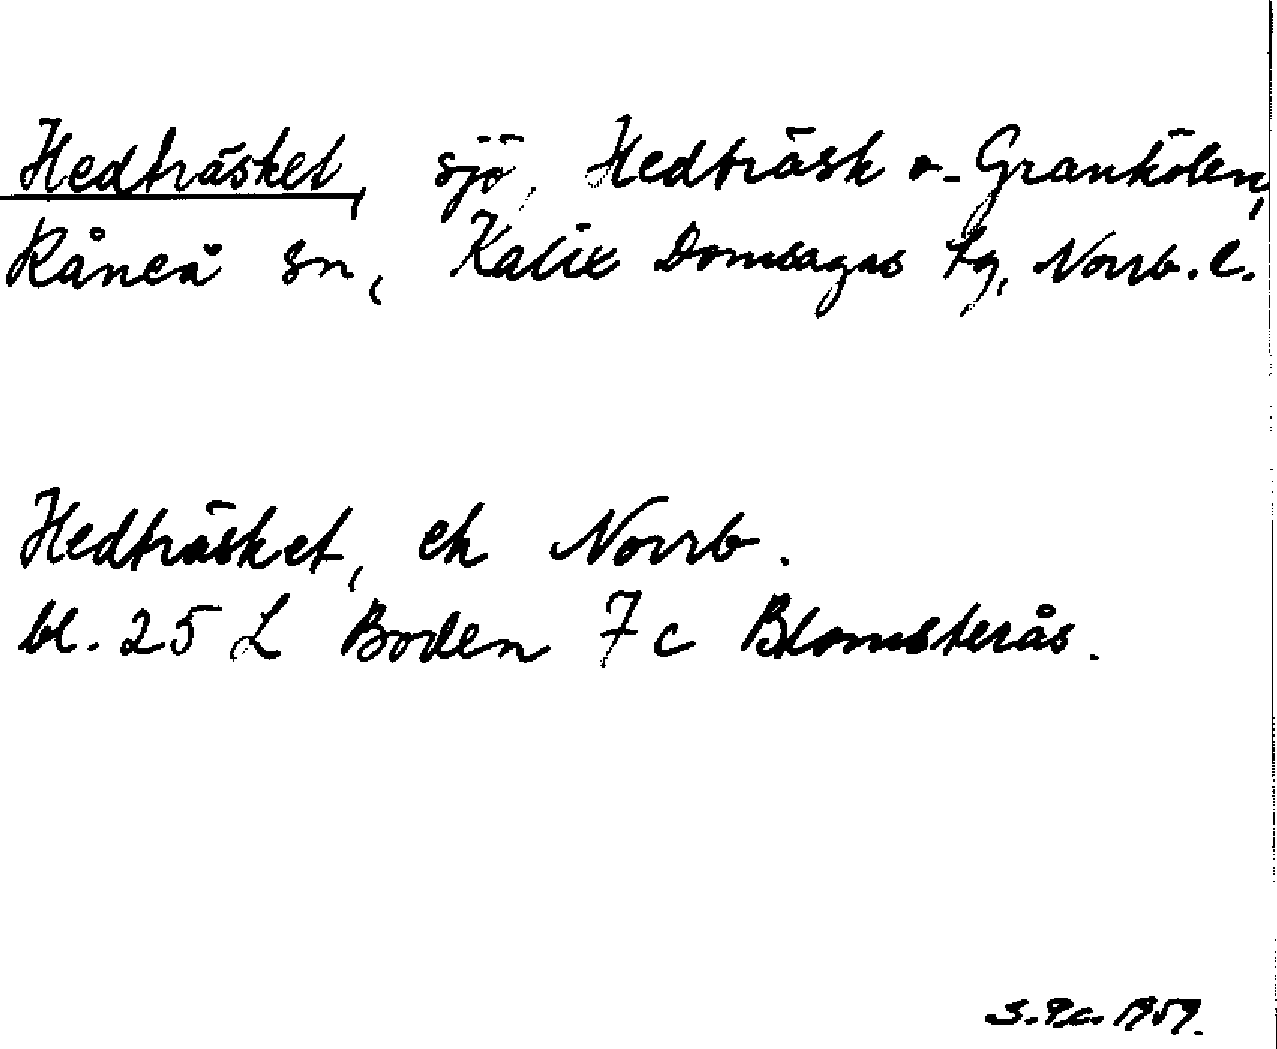 Hedträsket, sjö, Hedträsk o. Grankölen,
Råneå sn, Kalix Domsagas tg, Norrb. l.
Hedträsket, ek Norrb.
bl. 25 L Boden 7 c Blomsterås.
1959.